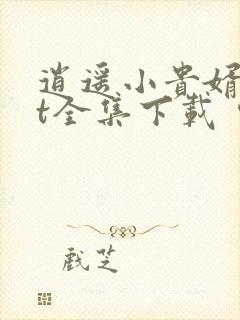 逍遥小貴婿
t全集下載
戲芝